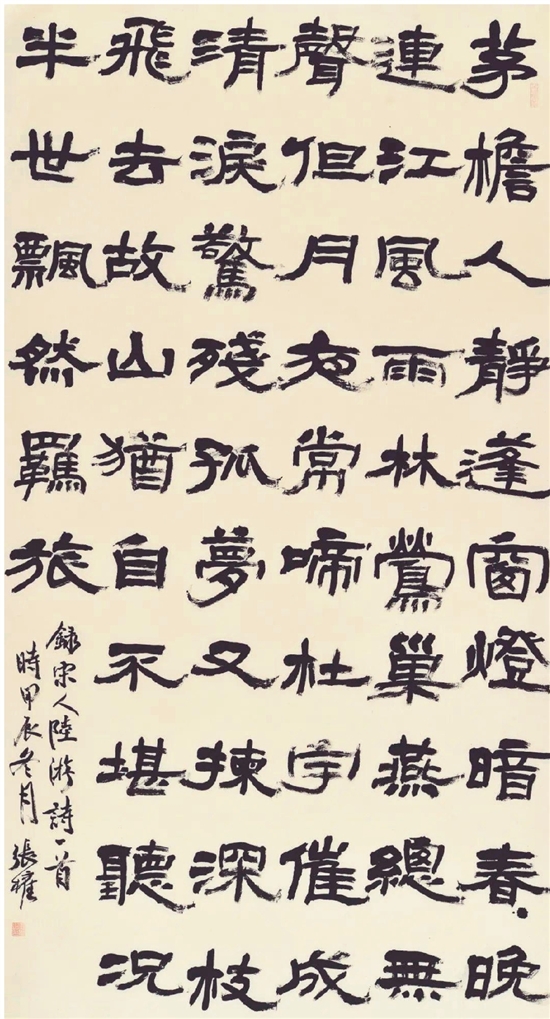 茅檐人靜蓬窗燈暗春晚
連江風雨林鶯巢燕總無
聲但月夜常啼杜宇催成
清淚驚殘孤夢又揀深枝
飛去故山猶自不堪聽況
半世飄然羈旅
錄宋人陸游詩一首
時甲辰冬月 張耀